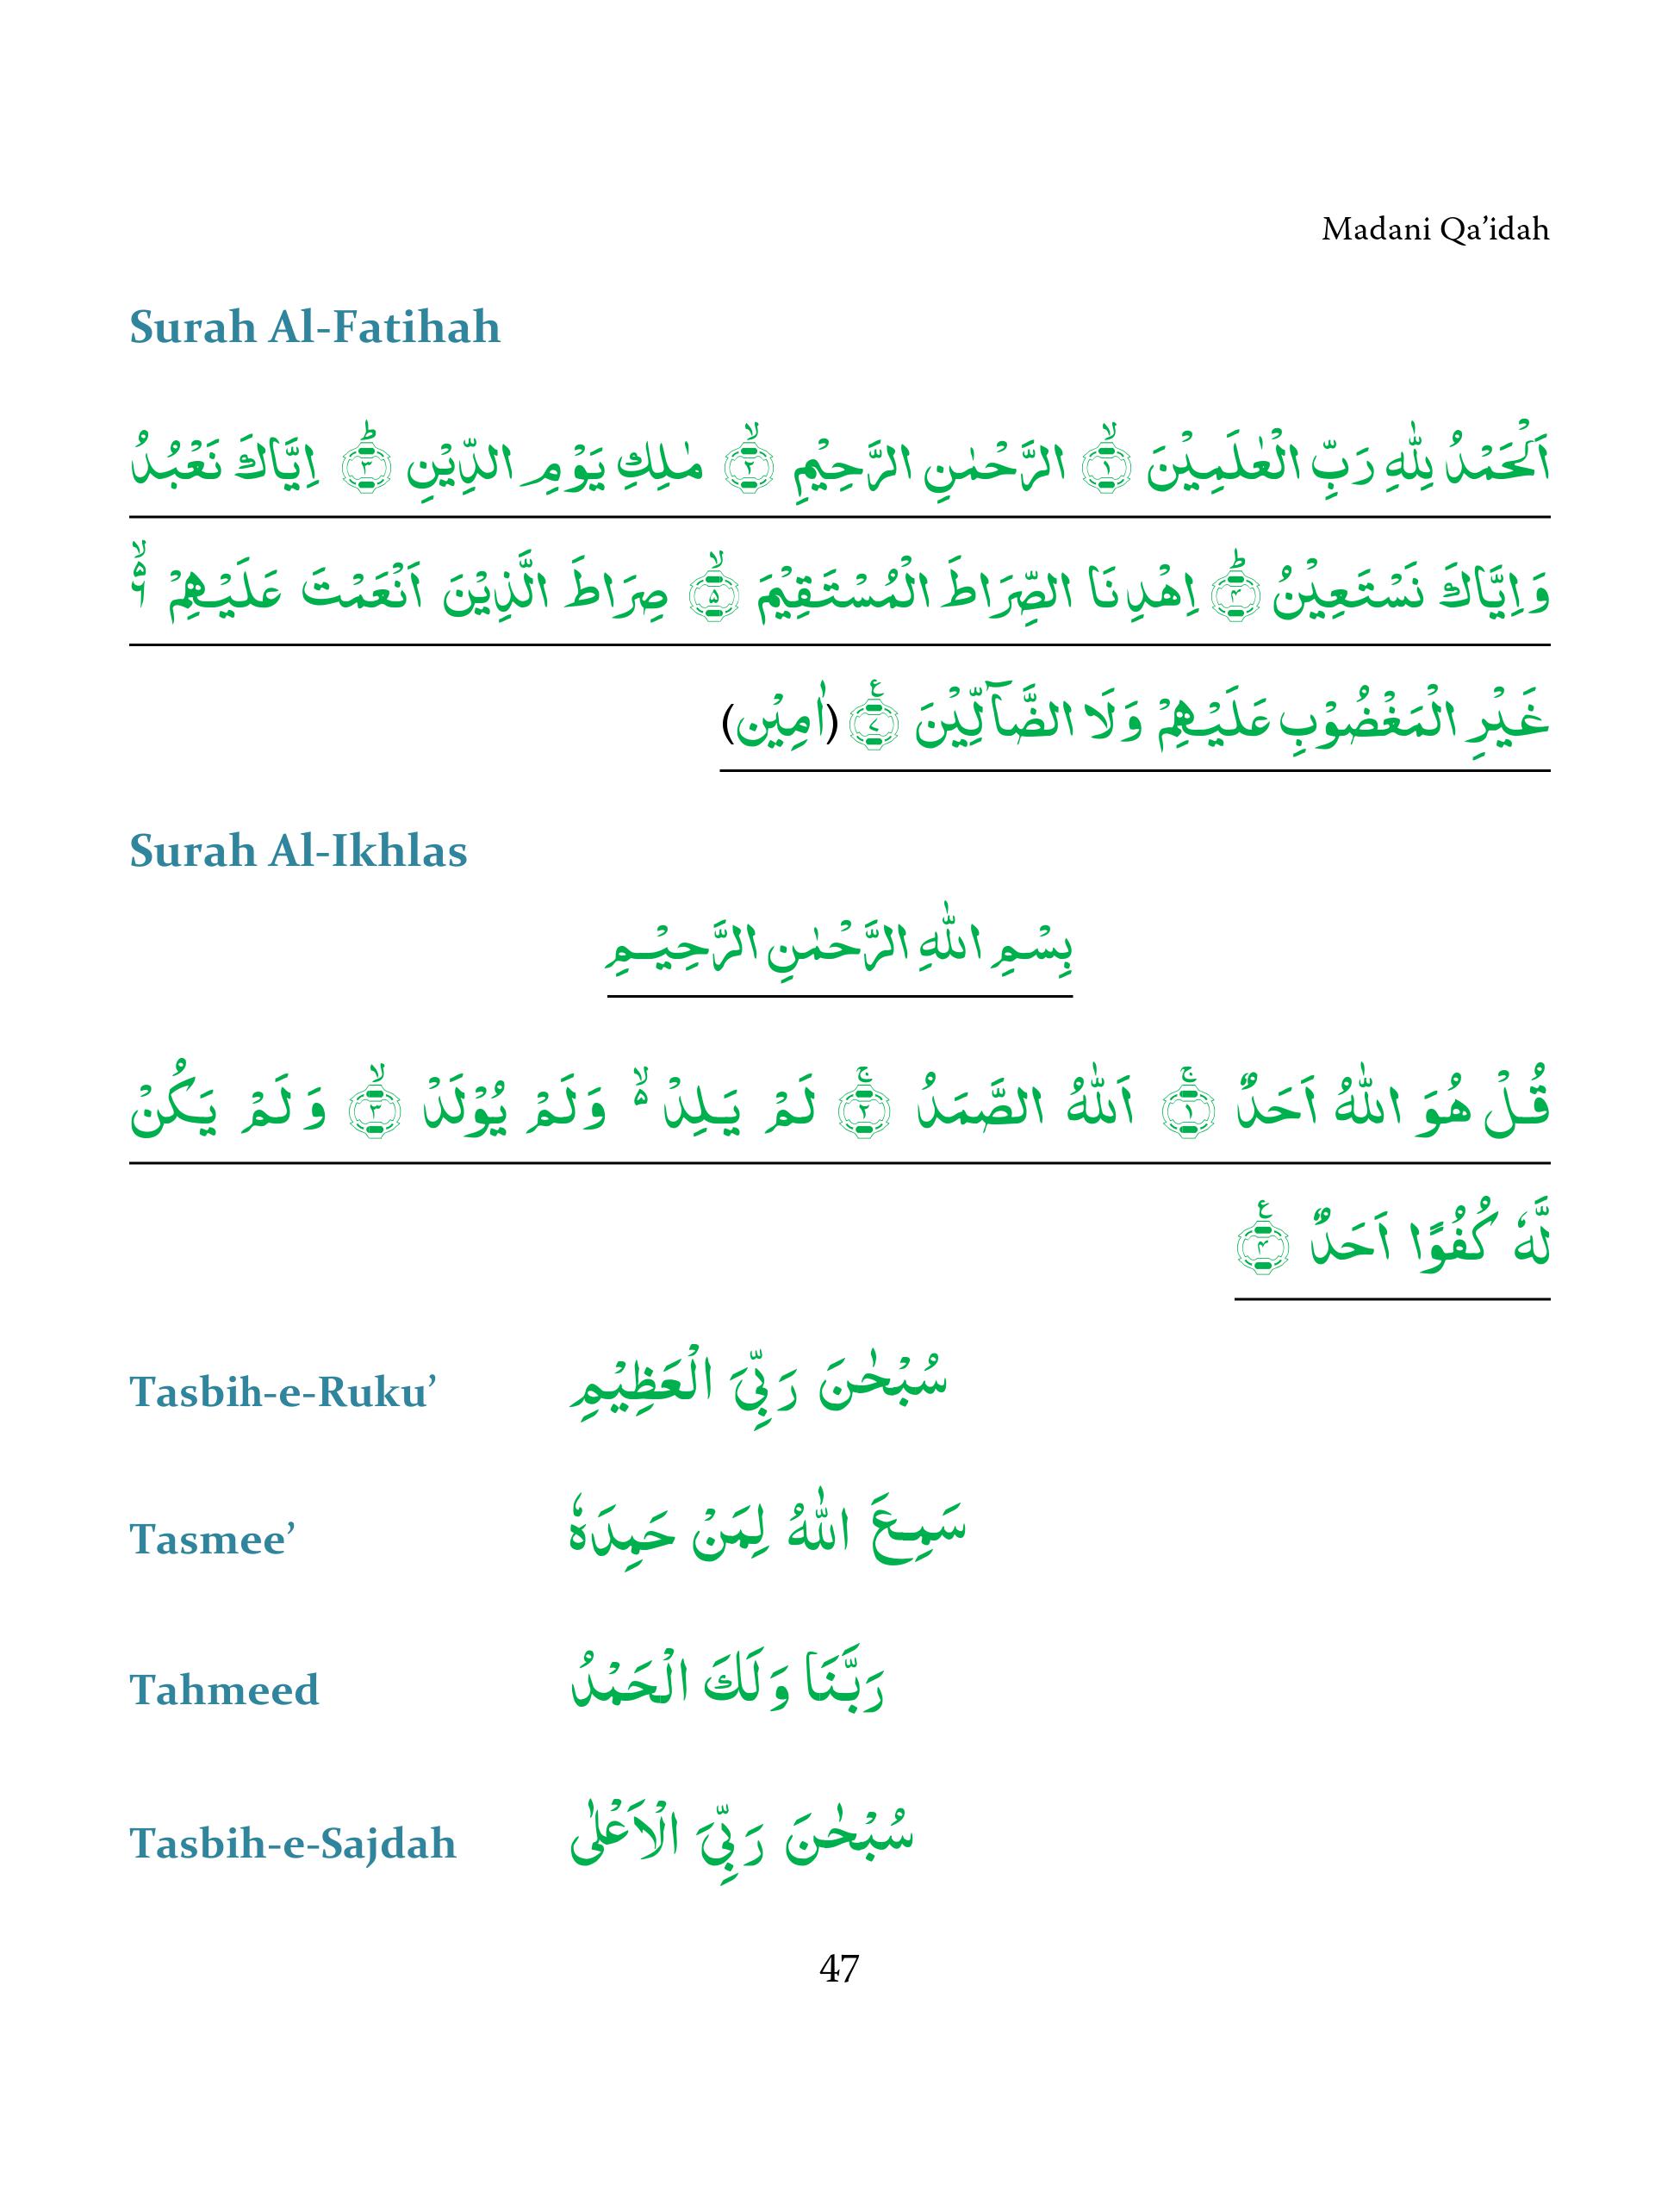 Madani Qa’idah
Surah Al-Fatihah
اَلْحَمْدُ لِلّٰهِ رَبِّ الْعٰلَمِیْنَ ۙ﴿۱﴾ الرَّحْمٰنِ الرَّحِیْمِ ۙ﴿۲﴾ مٰلِكِ یَوْمِ الدِّیْنِ ؕ﴿۳﴾ اِیَّاكَ نَعْبُدُ
وَ اِیَّاكَ نَسْتَعِیْنُ ؕ﴿۴﴾ اِهْدِنَا الصِّرَاطَ الْمُسْتَقِیْمَ ۙ﴿۵﴾ صِرَاطَ الَّذِیْنَ اَنْعَمْتَ عَلَیْهِمْ ۙ۬ۦ
غَیْرِ الْمَغْضُوْبِ عَلَیْهِمْ وَلَا الضَّآلِّیْنَ ﴿۷﴾ (اٰمِیْن)
Surah Al-Ikhlas
بِسْمِ اللّٰهِ الرَّحْمٰنِ الرَّحِیْمِ
قُلْ هُوَ اللّٰهُ اَحَدٌ ۚ﴿۱﴾ اَللّٰهُ الصَّمَدُ ۚ﴿۲﴾ لَمْ یَلِدْ ۬ۙ وَلَمْ یُوْلَدْ ۙ﴿۳﴾ وَ لَمْ یَكُنْ
لَّهٗ كُفُوًا اَحَدٌ ﴿۴﴾
Tasbih-e-Ruku’ سُبْحٰنَ رَبِّیَ الْعَظِیْمِ
Tasmee’ سَمِعَ اللّٰهُ لِمَنْ حَمِدَهٗ
Tahmeed رَبَّنَا وَلَكَ الْحَمْدُ
Tasbih-e-Sajdah سُبْحٰنَ رَبِّیَ الْاَعْلٰی
47